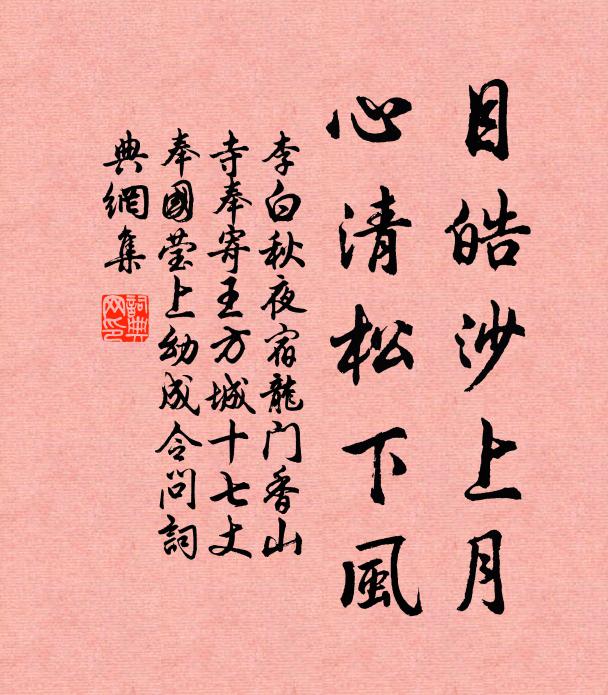 目皓沙上月
心清松下風
李白秋夜宿龍门香山
寺奉寄王方城十七丈
奉國瑩上幼成令問詞
典網集
詞典
网印